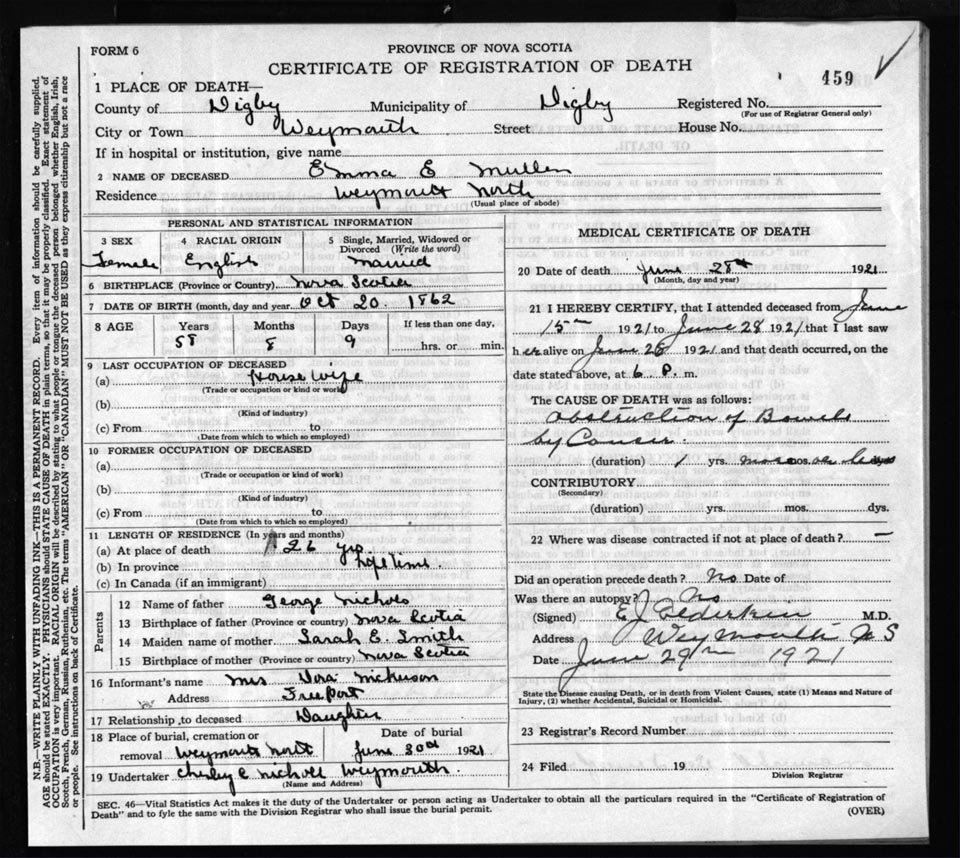 FORM 6
PROVINCE OF NOVA SCOTIA
CERTIFICATE OF REGISTRATION OF DEATH
459
1 PLACE OF DEATH—
County of Digby Municipality of Digby Registered No.
(For use of Registrar General only)
City or Town Weymouth Street House No.
If in hospital or institution, give name
2 NAME OF DECEASED Emma E Mullen
Residence Weymouth North
(Usual place of abode)
PERSONAL AND STATISTICAL INFORMATION
3 SEX 4 RACIAL ORIGIN 5 Single, Married, Widowed or Divorced (Write the word)
Female English Married
6 BIRTHPLACE (Province or Country) Nova Scotia
7 DATE OF BIRTH (month, day and year) Oct 20 1862
8 AGE Years Months Days If less than one day,
58 8 9 hrs. or min.
9 LAST OCCUPATION OF DECEASED
(a) House Wife
(Trade or occupation or kind of work)
(b)
(Kind of industry)
(c) From to
(Date from which to which so employed)
10 FORMER OCCUPATION OF DECEASED
(a)
(Trade or occupation or kind of work)
(b)
(Kind of industry)
(c) From to
(Date from which to which so employed)
11 LENGTH OF RESIDENCE (In years and months)
(a) At place of death 26 yrs
(b) In province Life time.
(c) In Canada (if an immigrant)
Parents
12 Name of father George Nichols
13 Birthplace of father (Province or country) Nova Scotia
14 Maiden name of mother Sarah E. Smith
15 Birthplace of mother (Province or country) Nova Scotia
16 Informant's name Mrs Dora Nickerson
Address Freeport
17 Relationship to deceased Daughter
18 Place of burial, cremation or Date of burial
removal Weymouth North June 30th 1921
19 Undertaker Weymouth
(Name and Address)
MEDICAL CERTIFICATE OF DEATH
20 Date of death June 28th 1921
(Month, day and year)
21 I HEREBY CERTIFY, that I attended deceased from June
15th 1921 to June 28 1921 that I last saw
her alive on June 28 1921 and that death occurred, on the
date stated above, at 6 P. m.
The CAUSE OF DEATH was as follows:
Obstruction of Bowels
by Cancer.
(duration) 1 yrs. mos. days
CONTRIBUTORY
(Secondary)
(duration) yrs. mos. dys.
22 Where was disease contracted if not at place of death? —
Did an operation precede death? No Date of
Was there an autopsy? No
(Signed) E J Elderkin M.D.
Address Weymouth N S
Date June 29th 1921
State the Disease causing Death, or in death from Violent Causes, state (1) Means and Nature of
Injury, (2) whether Accidental, Suicidal or Homicidal.
23 Registrar's Record Number
24 Filed 19
Division Registrar
SEC. 46—Vital Statistics Act makes it the duty of the Undertaker or person acting as Undertaker to obtain all the particulars required in the "Certificate of Registration of
Death" and to fyle the same with the Division Registrar who shall issue the burial permit.
(OVER)
N.B.—WRITE PLAINLY WITH UNFADING INK—THIS IS A PERMANENT RECORD. Every item of information should be carefully supplied.
AGE should be stated EXACTLY. PHYSICIANS should STATE CAUSE OF DEATH in plain terms, so that it may be properly classified. Exact statement of
OCCUPATION is very important. RACIAL ORIGIN will be described by stating to what people or tongue the deceased person belonged whether English, Irish,
Scotch, French, German, Russian, Ruthenian, etc. The terms "AMERICAN" OR "CANADIAN" MUST NOT BE USED as they express citizenship but not a race
or people. See instructions on back of Certificate.